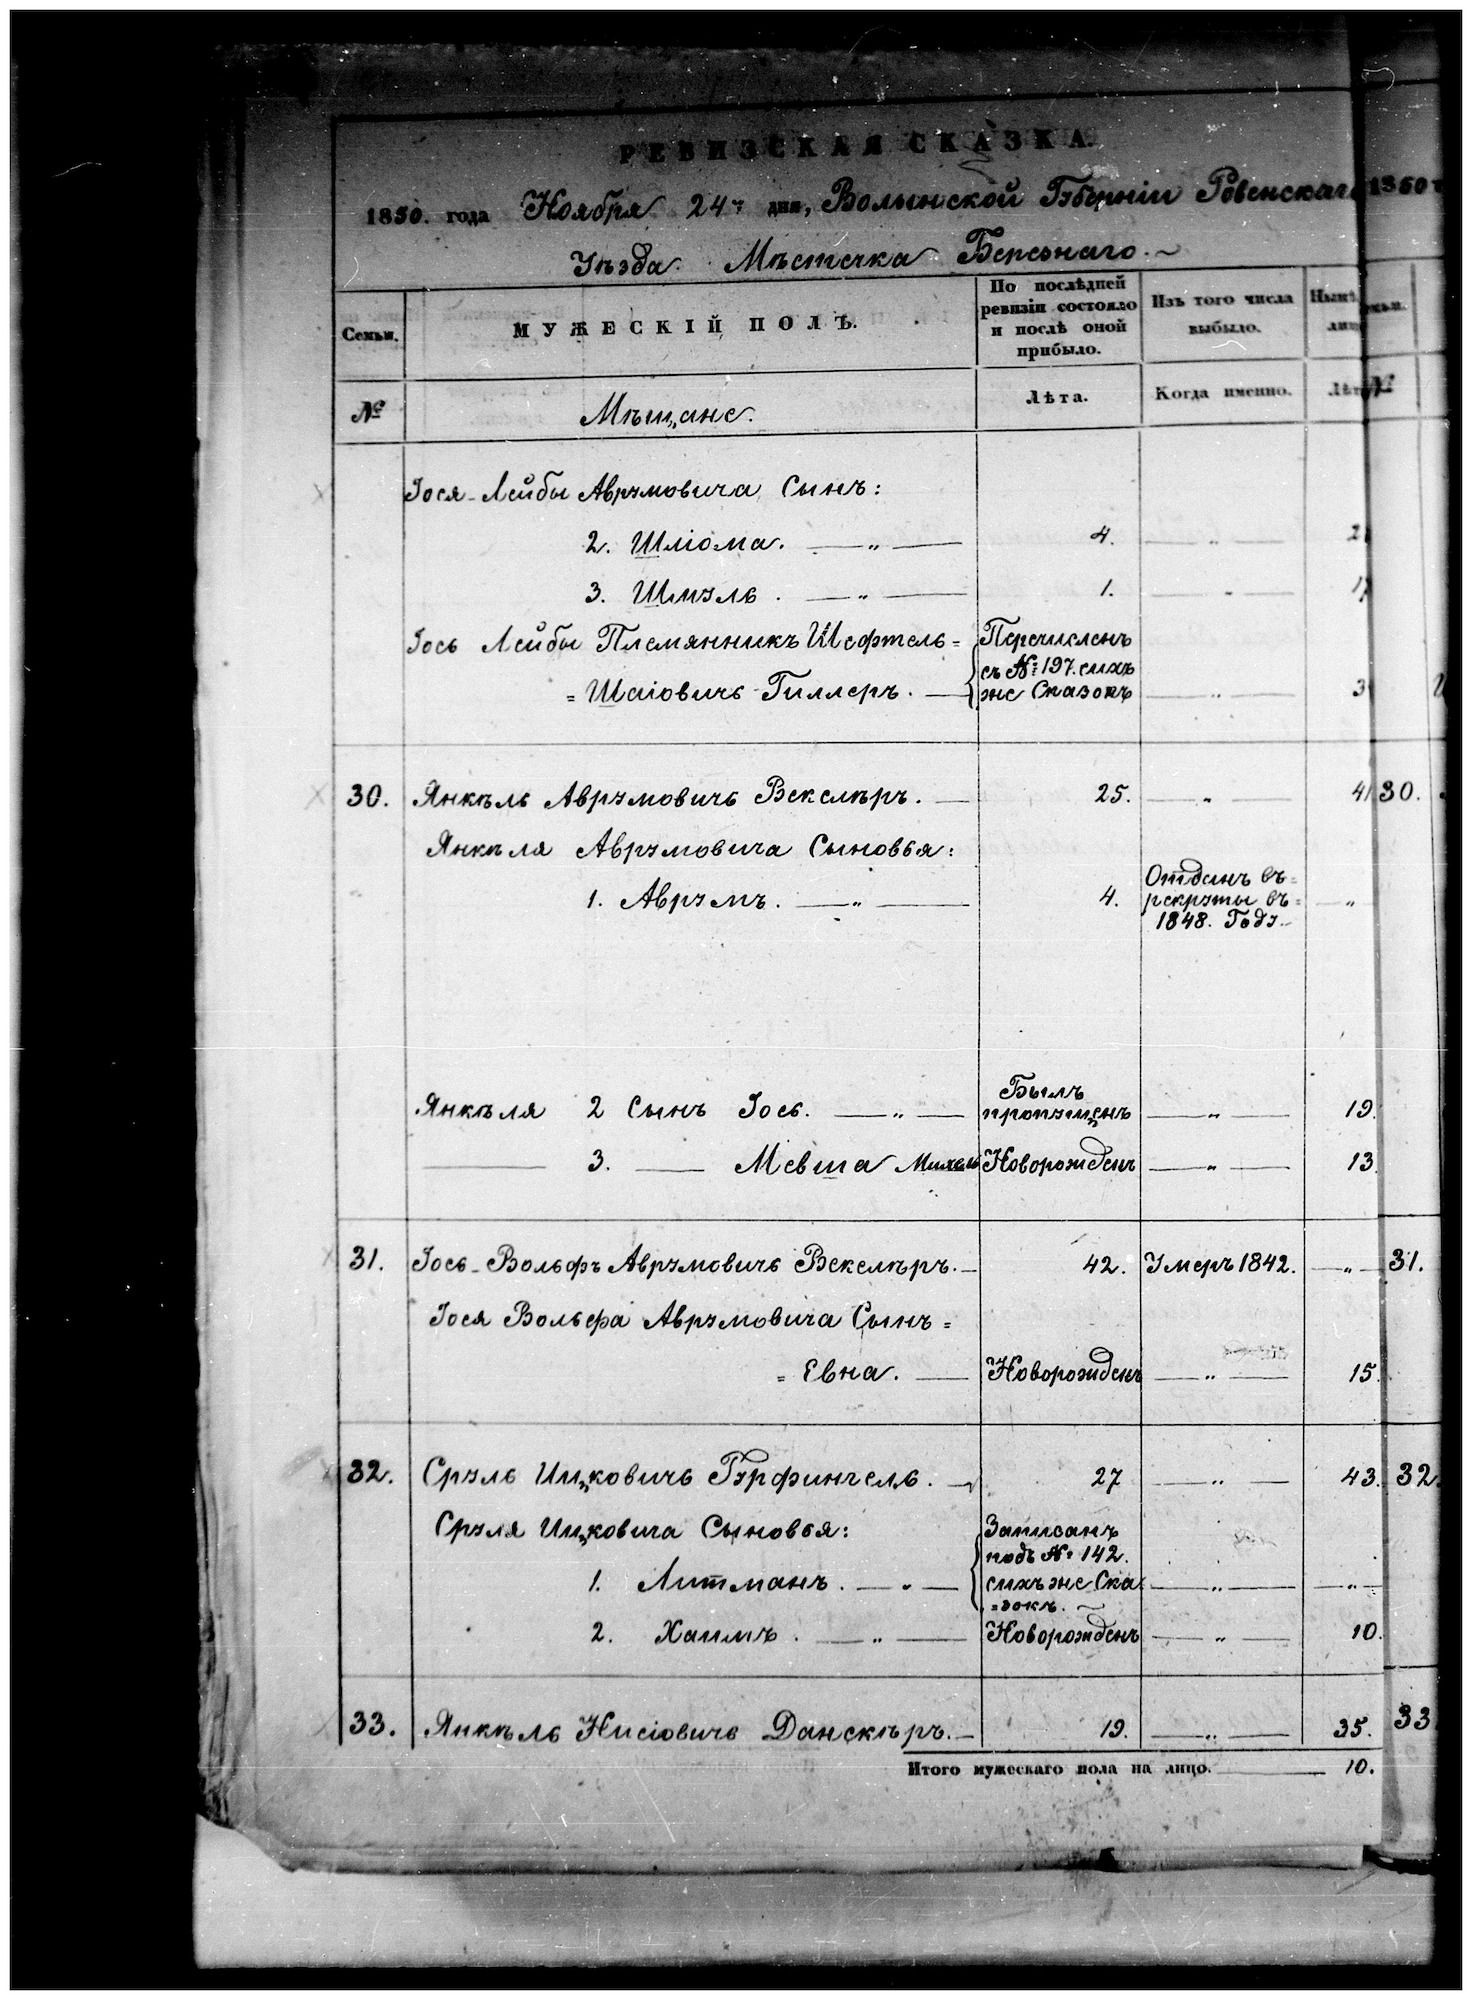 РЕВИЗСКАЯ СКАЗКА.
1850. года Ноября 24го дня, Волынской Губерніи Ровенскаго
Уѣзда Мѣстечка Березнаго.
Семьи. МУЖЕСКІЙ ПОЛЪ. По послѣдней ревизіи состояло и послѣ оной прибыло. Изъ того числа выбыло.
№ Мѣщане. Лѣта. Когда именно. Лѣта
Іося-Лейбы Аврумовича Сынъ:
2. Шліома. — „ — 4. — „ —
3. Шмуль. — „ — 1. — „ — 17
Іось Лейбы Племянникъ Шефтель=
=Шаіовичъ Гиллеръ. — Перечисленъ съ №197. сихъ же Сказокъ — „ —
30. Янкѣль Аврумовичь Векслѣръ. — 25. — „ — 41 30.
Янкѣля Аврумовича Сыновья:
1. Аврумъ. — „ — 4. Отданъ въ= рекруты въ= 1848. Году. — „
Янкѣля 2 Сынъ Іось. — „ — Былъ пропущенъ — „ — 19.
— 3. — Мевша Михель Новорожденъ — „ — 13.
31. Іось-Вольфъ Аврумовичь Векслѣръ. — 42. Умеръ 1842. — „ — 31.
Іося Вольфа Аврумовича Сынъ=
= Евна. — Новорожденъ — „ — 15.
32. Сруль Ицковичь Гурфинчель. — 27 — „ — 43. 32.
Сруля Ицковича Сыновья:
1. Литманъ. — „ — Записанъ подъ № 142. сихъ же Ска =зокъ. — „ — — „ —
2. Хаимъ. — „ — Новорожденъ — „ — 10.
33. Янкѣль Нисіовичь Данскѣръ. — 19. — „ — 35. 33
Итого мужескаго пола на лицо. — 10.